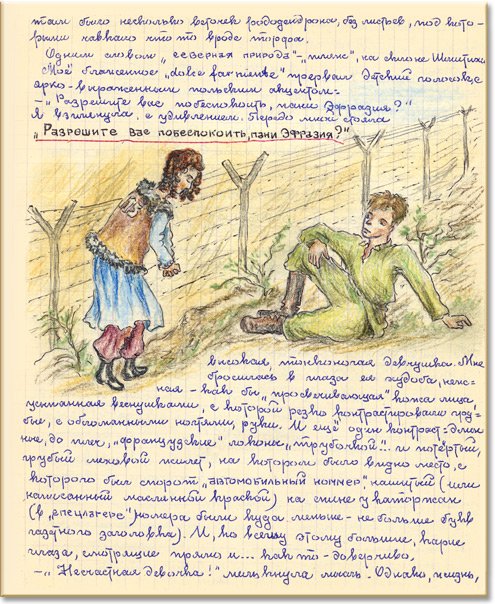 там было несколько веточек рододендрона, без листьев, под кото-
рыми кавкало что то вроде торфа.
Одним словом „северная природа"-„тшляс", на склоне Шмитихи.
Моё блаженное „dolce far niente" прервал детский голосок с
ярко-выраженным польским акцентом:
-„Разрешите вас побеспокоить, пани Эфразия?"
Я взглянула с удивлением. Передо мной стояла
„Разрешите вас побеспокоить, пани Эфразия?"
высокая, тонконогая девчушка. Мне
бросилась в глаза её худоба, неес-
ная - как бы „просвечивающая" кожа лица
усыпанная веснушками, с которой резко контрастировали гру-
бые, с обломанными ногтями, руки. И ещё один контраст: длин
ные, до плеч, „французские" локоны „трубочкой"!.. и потёртый,
грубый меховой жилет, на котором было видно место, с
которого был спорот „автомобильный номер" нашитый (или
написанный масляной краской) на спине у каторжан
(в „спецлагере" номера были куда меньше - не больше букв
газетного заголовка). И ко всему этому большие, карие
глаза, смотрящие прямо и... как то доверчиво.
-„Несчастная девочка!" мелькнула мысль. Однако, жизнь,